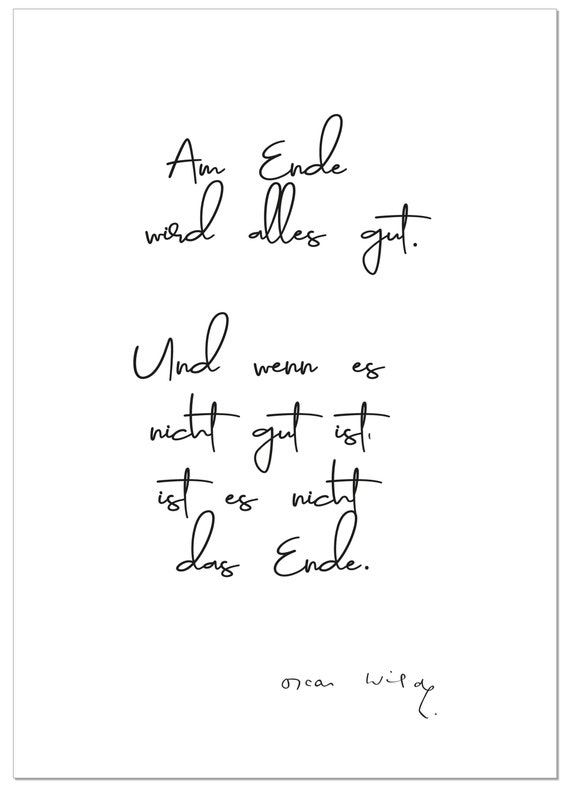 Am Ende
wird alles gut.
Und wenn es
nicht gut ist,
ist es nicht
das Ende.
Oscar Wilde.